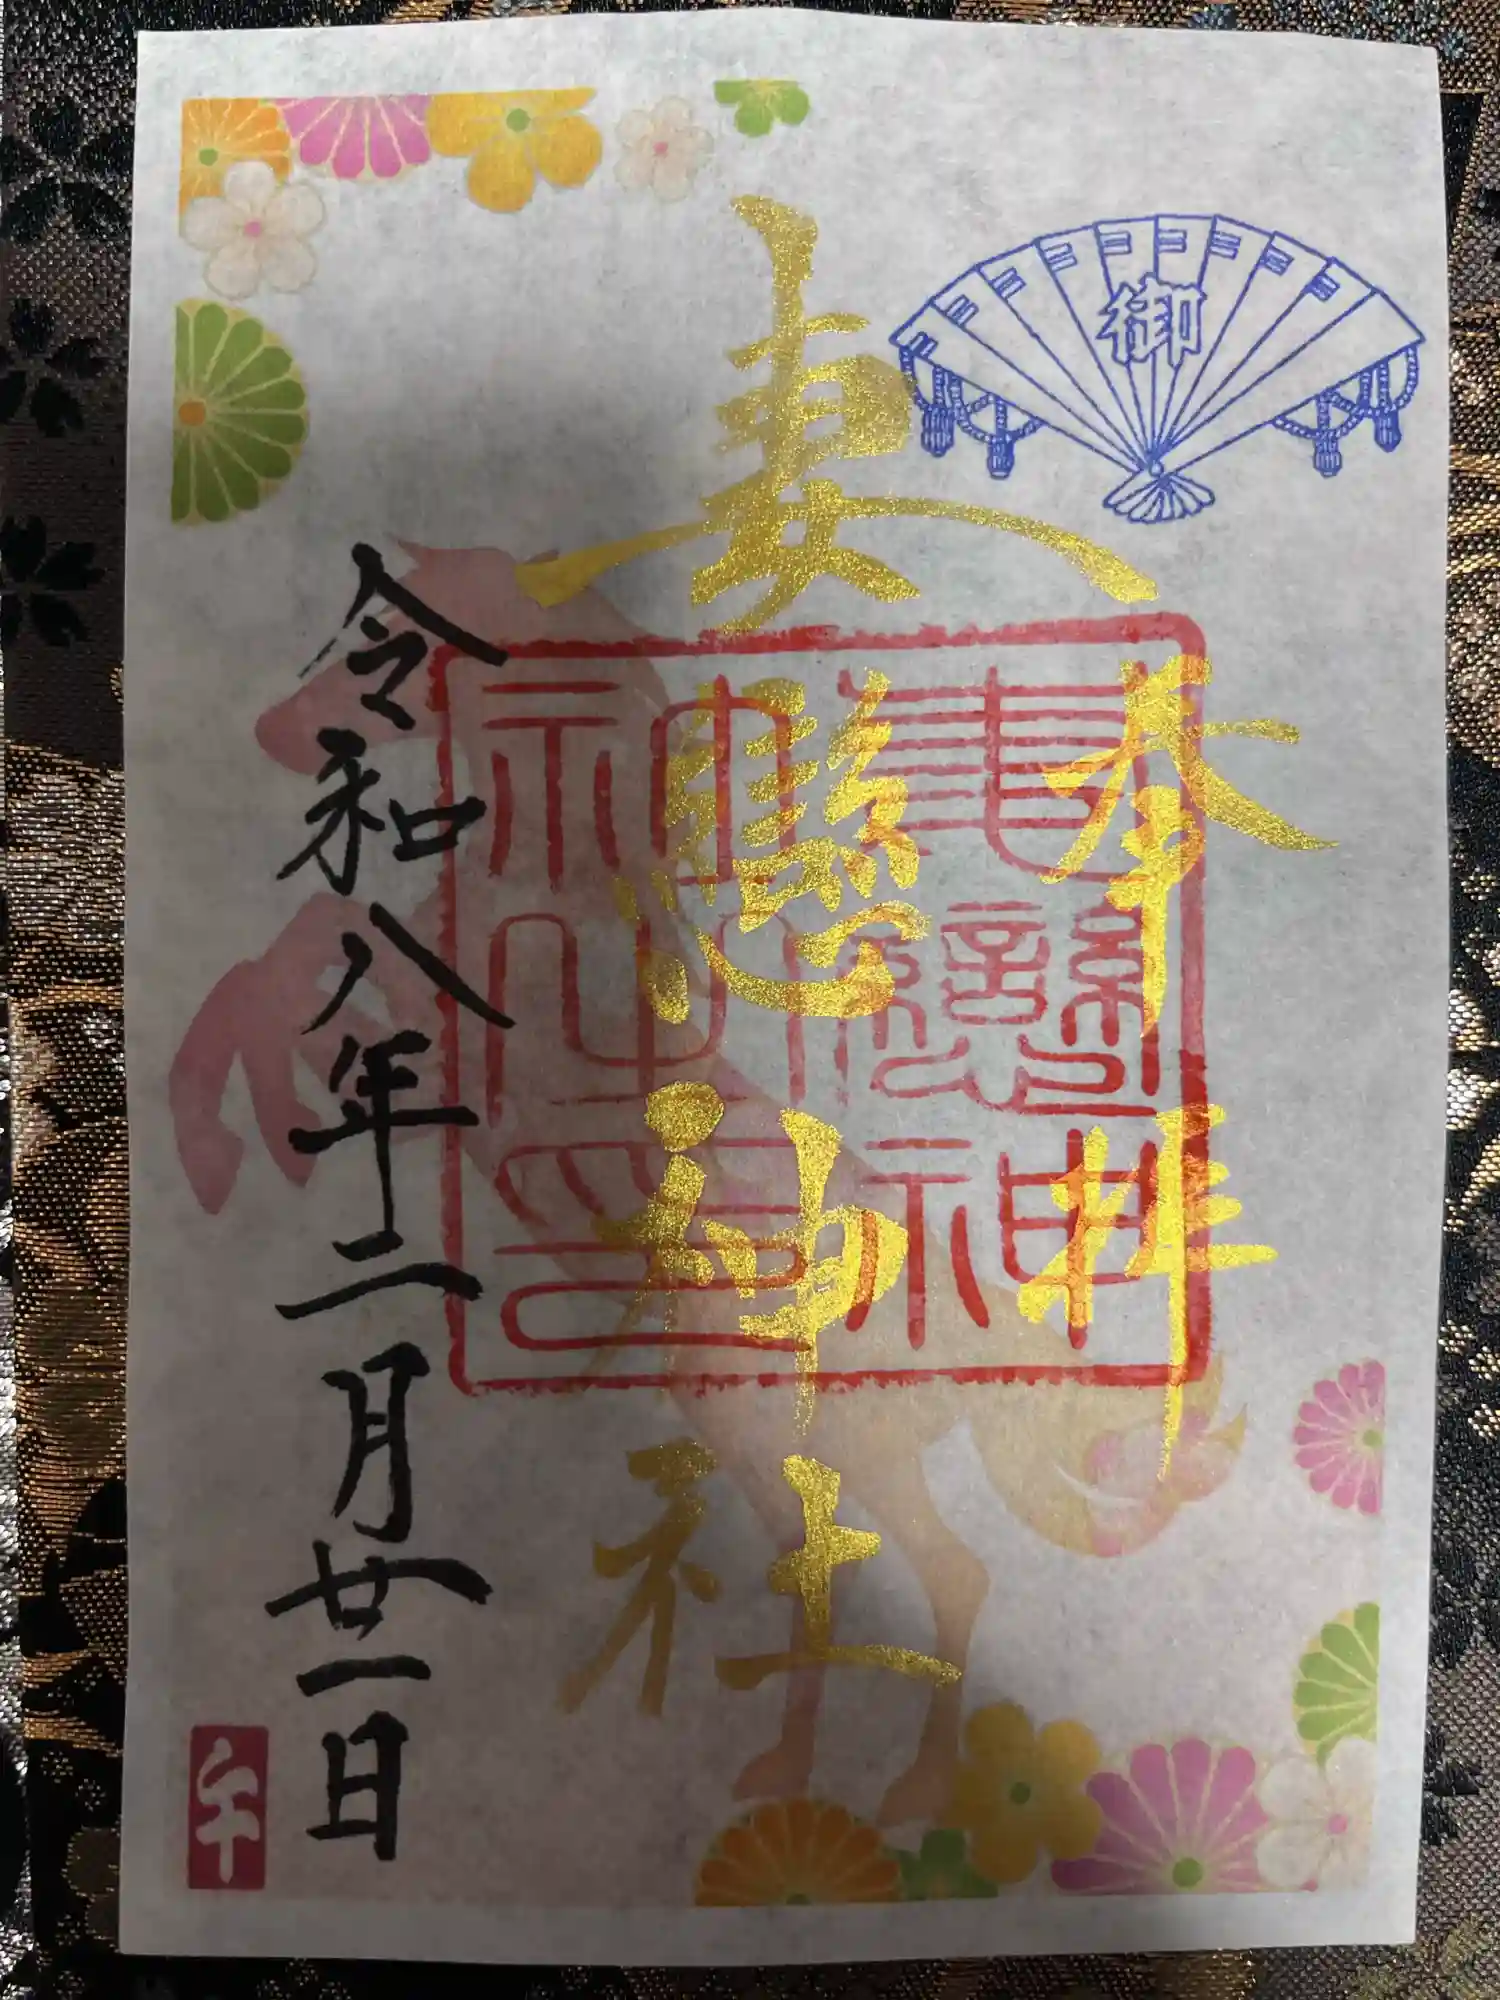 御
奉拝
妻戀神社
令和八年二月廿一日
午